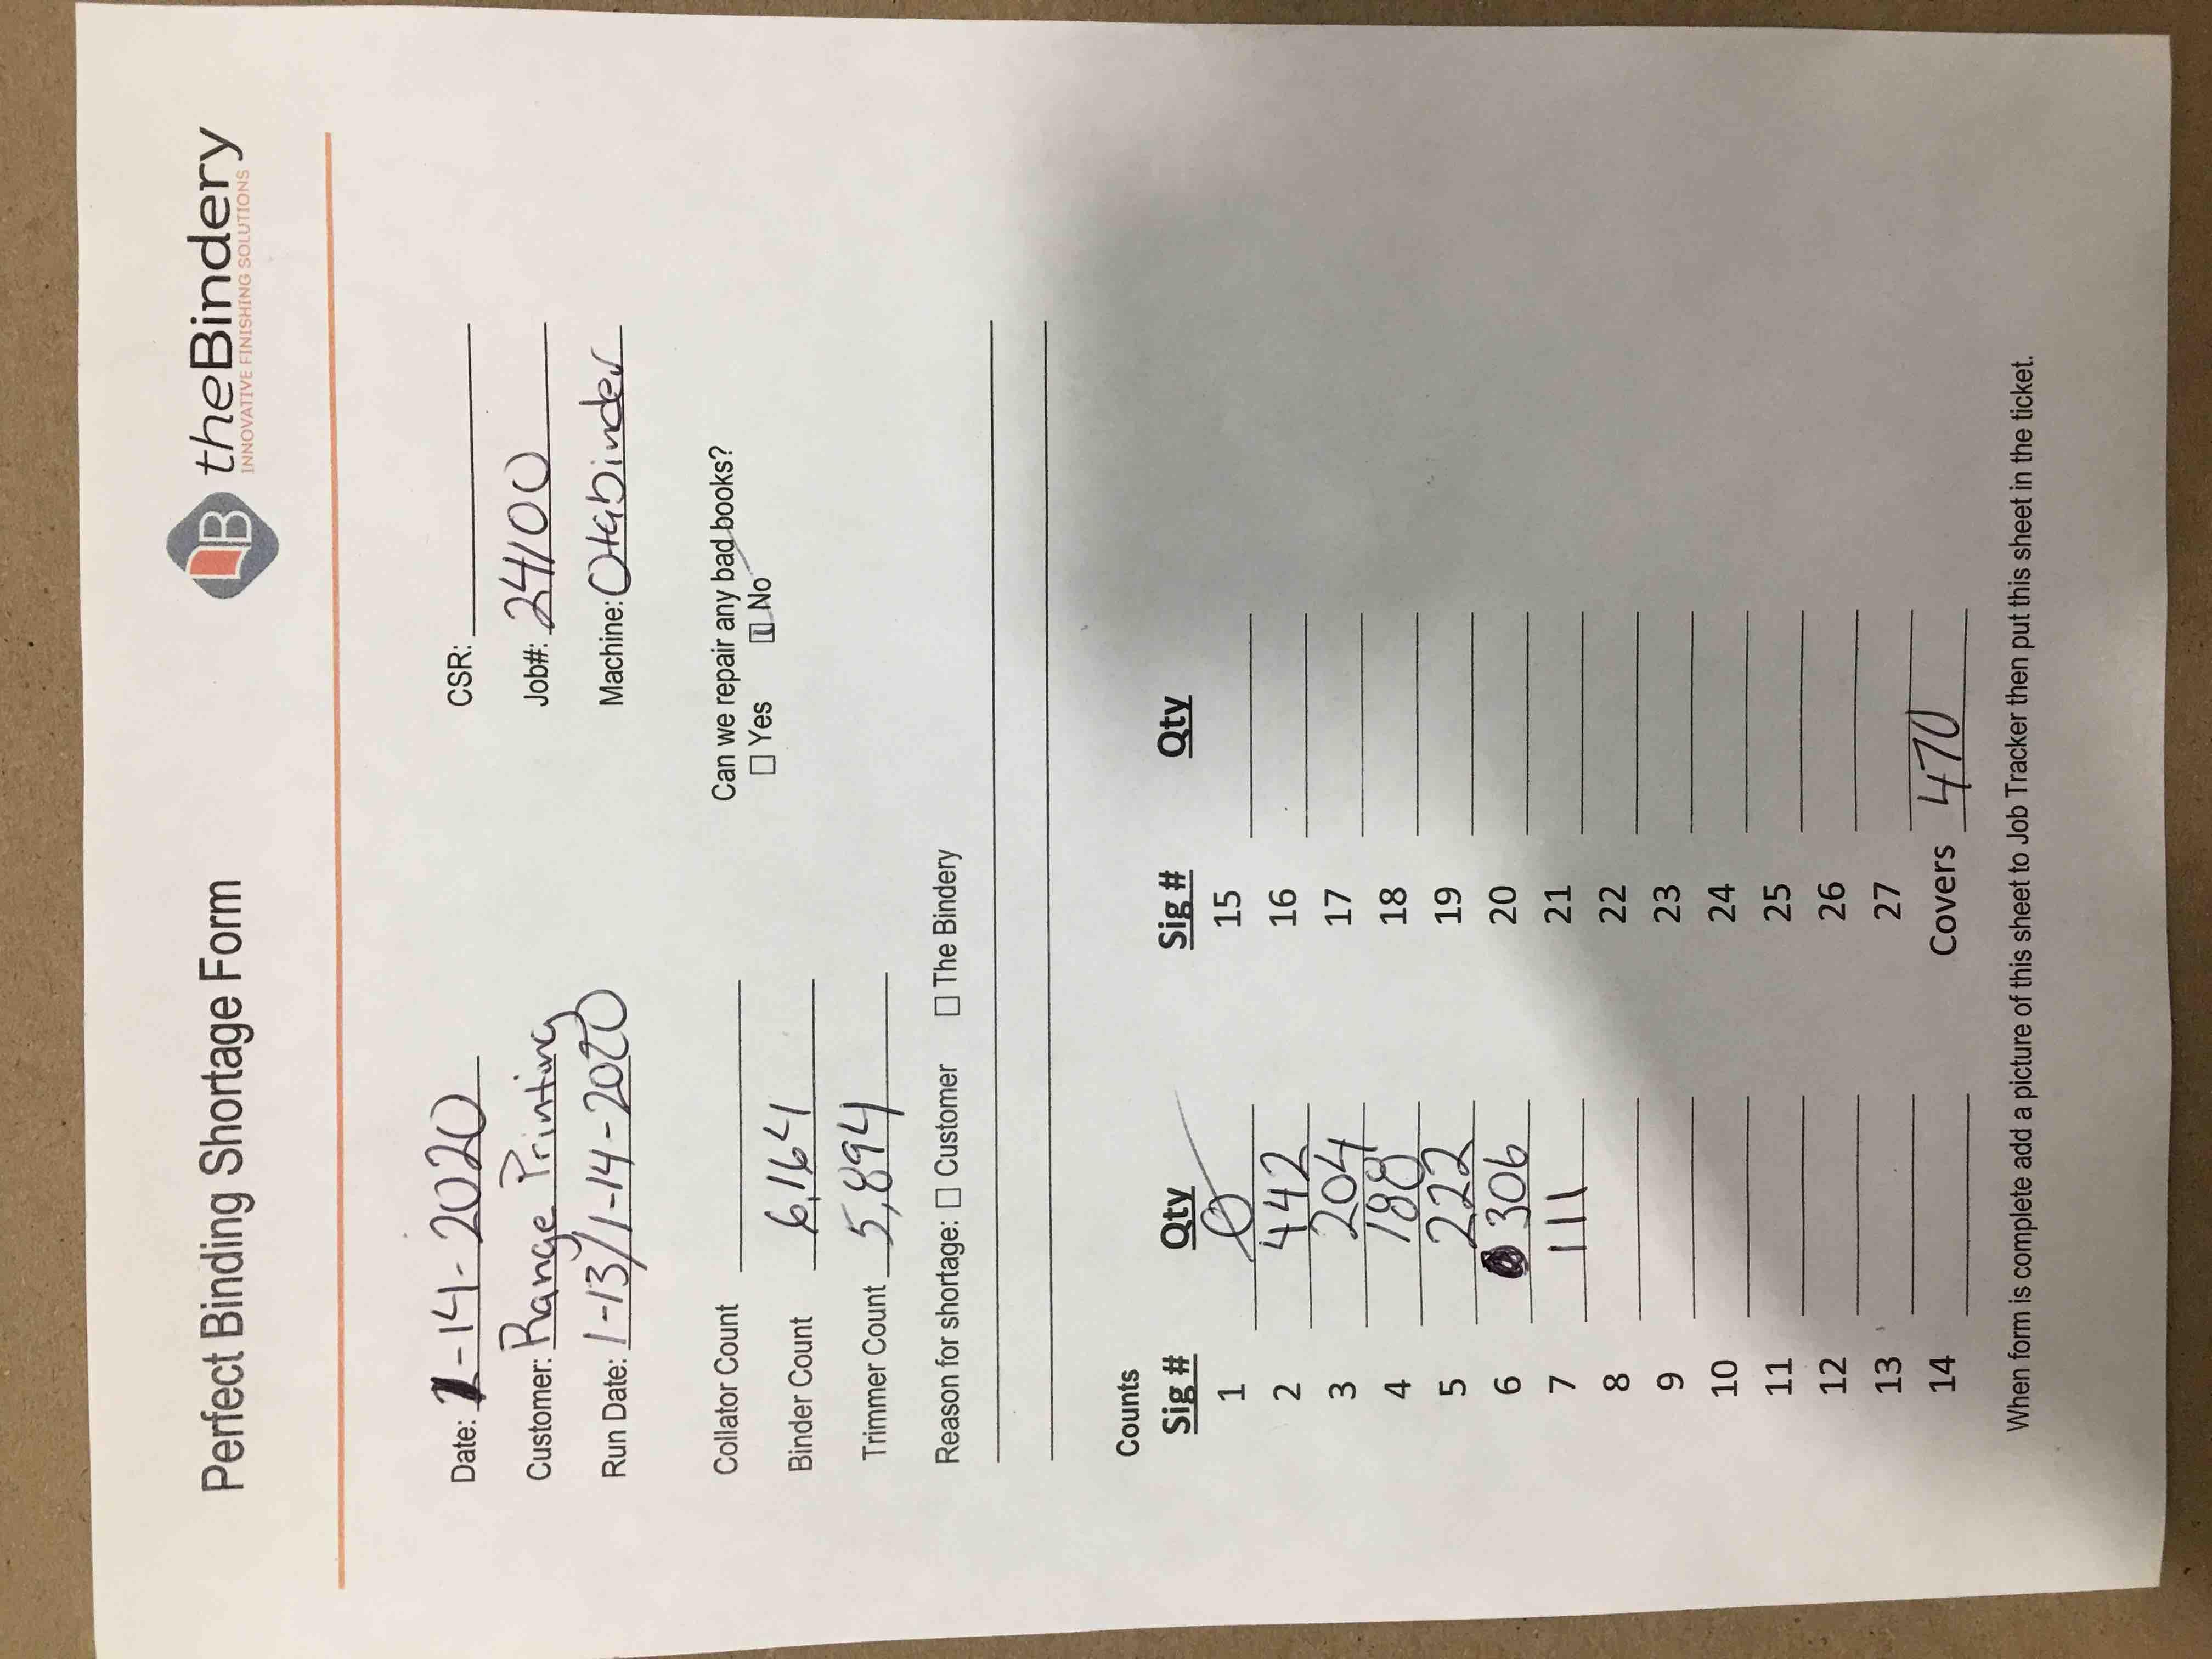 Perfect Binding Shortage Form
B theBindery
INNOVATIVE FINISHING SOLUTIONS
Date: 1-14-2020 CSR:
Customer: Range Printing Job#: 24100
Run Date: 1-13/1-14-2020 Machine: Otabinder
Collator Count Can we repair any bad books?
☐ Yes ☑ No
Binder Count 6,164
Trimmer Count 5,894
Reason for shortage: ☐ Customer ☐ The Bindery
Counts
Sig # Qty Sig # Qty
1 0 15
2 442 16
3 204 17
4 188 18
5 222 19
6 306 20
7 111 21
8 22
9 23
10 24
11 25
12 26
13 27
14 Covers 470
When form is complete add a picture of this sheet to Job Tracker then put this sheet in the ticket.